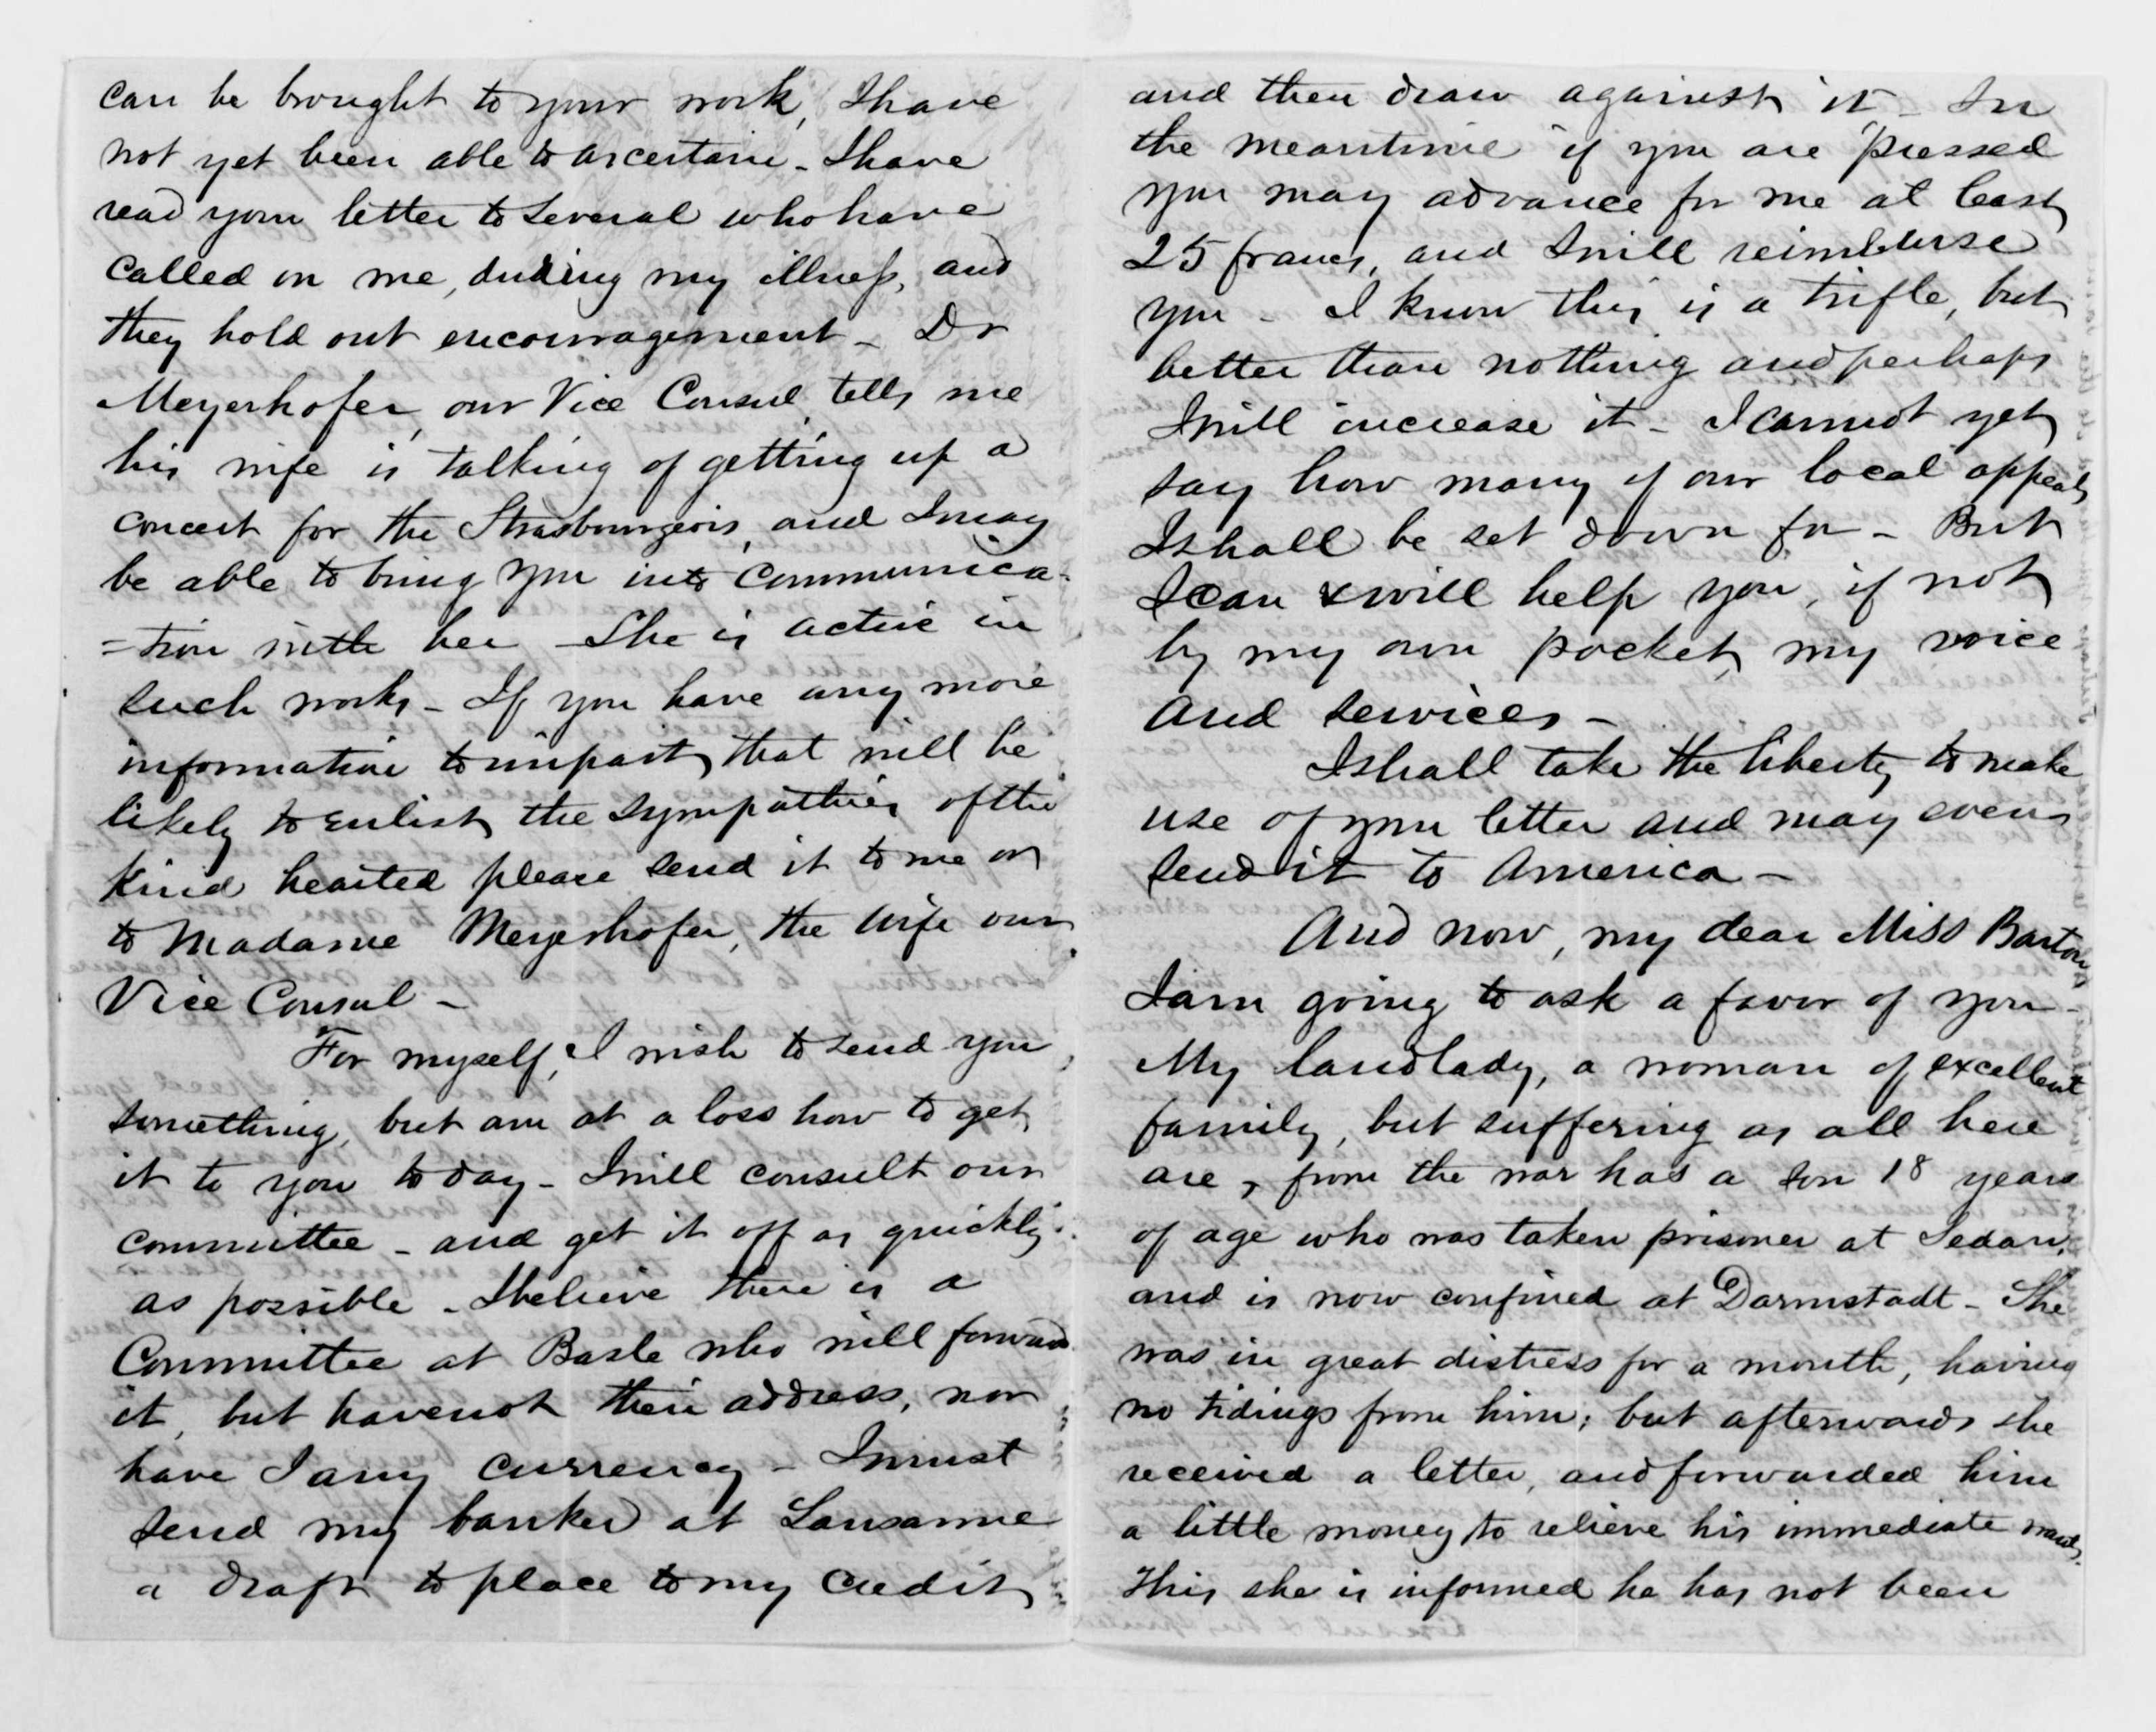 can be brought to your work, I have
not yet been able to ascertain - I have
read your letter to several who have
called on me, during my illness, and
they hold out encouragement - Dr
Meyerhofer, our Vice Consul, tells me
his wife is talking of getting up a
concert for the Strasbourgeois, and I may
be able to bring you into communica-
=tion with her - She is active in
such works - If you have any more
information to impart, that will be
likely to enlist the sympathies of the
kind hearted please send it to me or
to Madame Meyerhofer, the wife our
Vice Consul -
For myself, I wish to send you
something, but am at a loss how to get
it to you to day - I will consult our
committee - and get it off as quickly
as possible - I believe there is a
Committee at Basle who will forward
it, but have not their address, nor
have I any currency - I must
send my banker at Lausanne
a draft to place to my credit
and then draw against it - In
the meantime if you are pressed
you may advance for me at least
25 francs, and I will reimburse
you - I know this is a trifle, but
better than nothing and perhaps
I will increase it - I cannot yet
say how many of our local appeals
I shall be set down for - But
I can & will help you, if not
by my own pocket, my voice
and services -
I shall take the liberty to make
use of your letter and may even
send it to America -
And now, my dear Miss Barton
I am going to ask a favor of you -
My landlady, a woman of excellent
family, but suffering as all here
are, from the war has a son 18 years
of age who was taken prisoner at Sedan,
and is now confined at Darmstadt - She
was in great distress for a month, having
no tidings from him; but afterwards she
received a letter, and forwarded him
a little money to relieve his immediate wants.
This she is informed he has not been